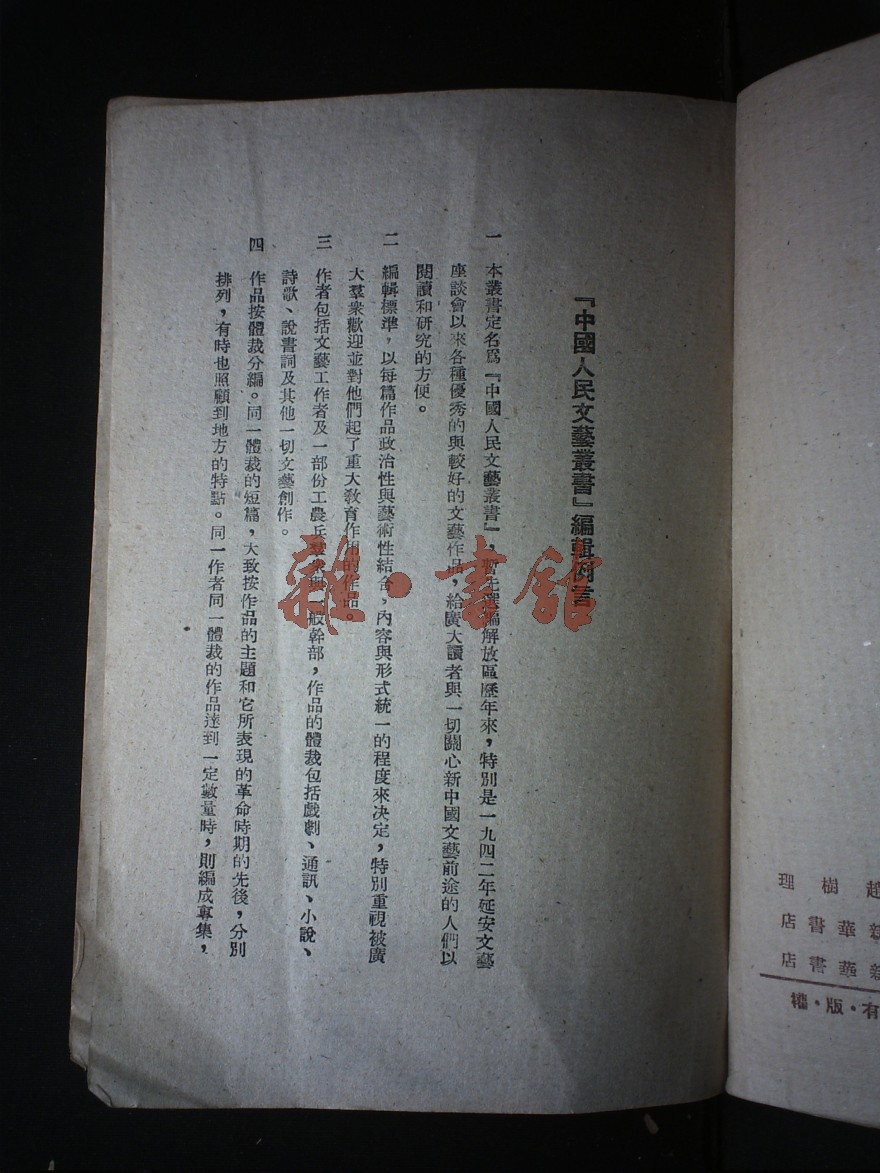 『中國人民文藝叢書』編輯例言
一 本叢書定名爲『中國人民文藝叢書』，暫先選編解放區歷年來，特別是一九四二年延安文藝
座談會以來各種優秀的與較好的文藝作品，給廣大讀者與一切關心新中國文藝前途的人們以
閱讀和研究的方便。
二 編輯標準，以每篇作品政治性與藝術性結合，內容與形式統一的程度來決定，特別重視被廣
大羣衆歡迎並對他們起了重大敎育作用的作品。
三 作者包括文藝工作者及一部份工農兵羣衆與一般幹部，作品的體裁包括戲劇、通訊、小說、
詩歌、說書詞及其他一切文藝創作。
四 作品按體裁分編。同一體裁的短篇，大致按作品的主題和它所表現的革命時期的先後，分別
排列，有時也照顧到地方的特點。同一作者同一體裁的作品達到一定數量時，則編成專集，
雜·書館
理樹趙
店書華新
店書華新
權·版·有